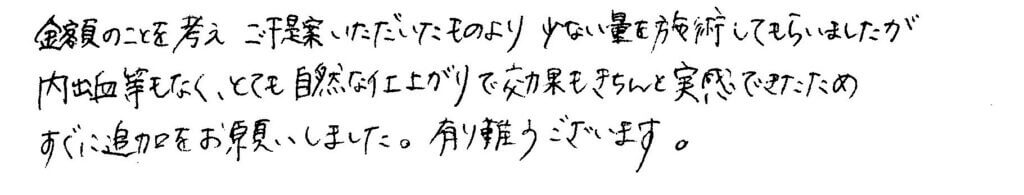 金額のことを考え ご提案いただいたものより 少ない量を施術してもらいましたが
内出血等もなく、とても自然な仕上がりで効果もきちんと実感できたため
すぐに追加をお願いしました。有り難うございます。